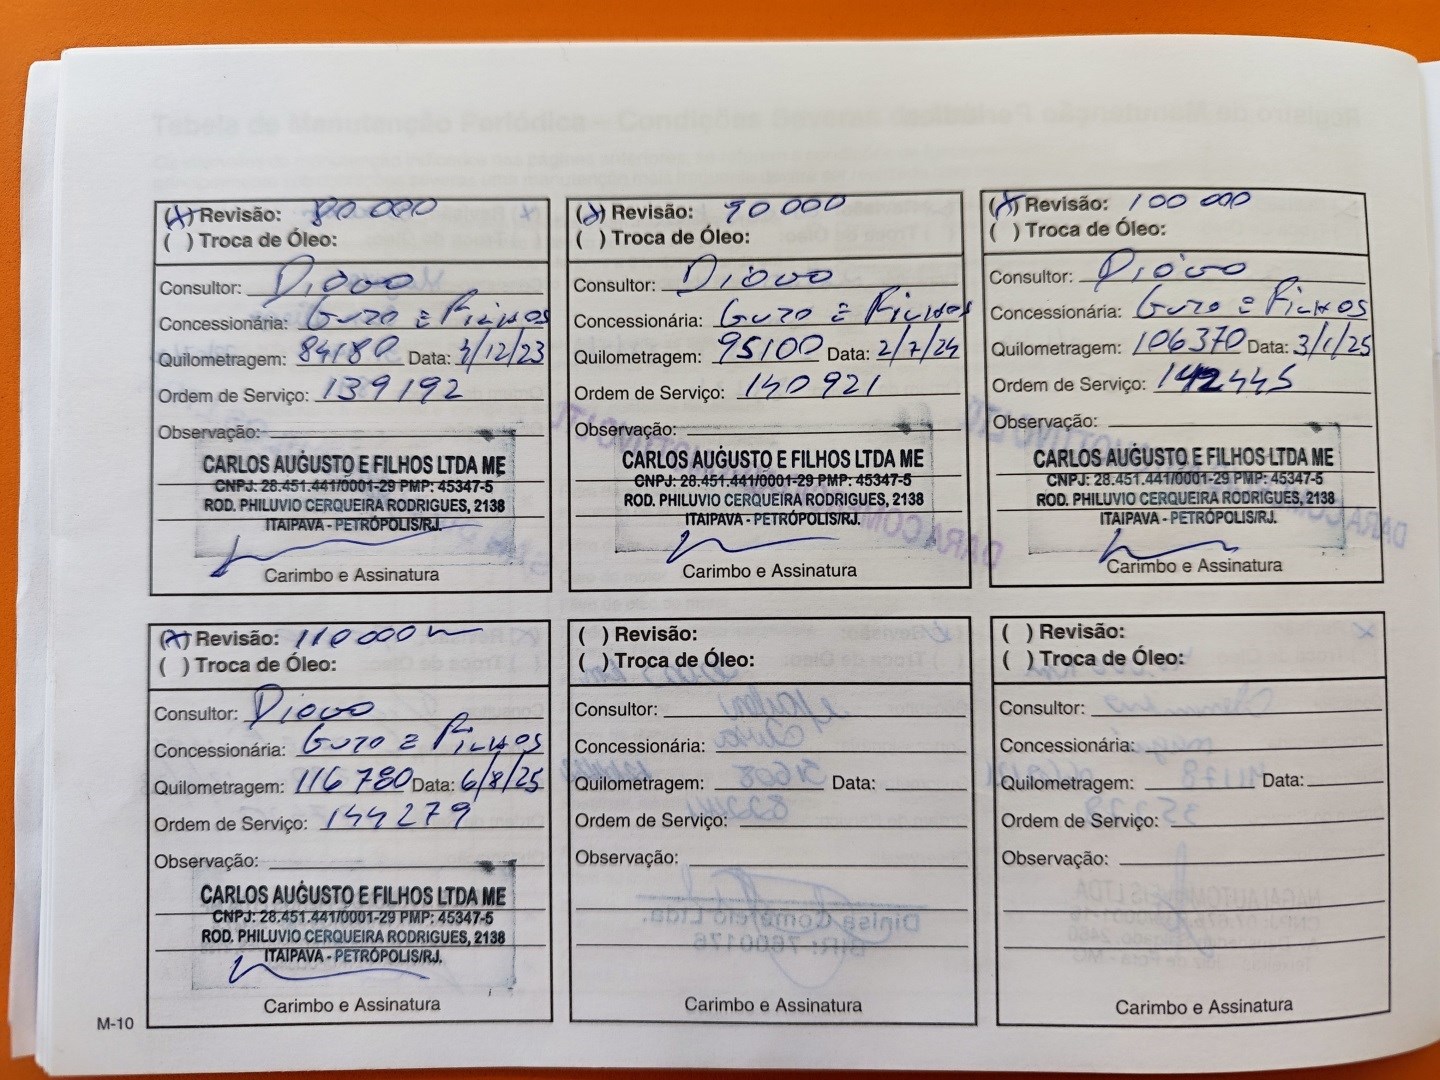 (X) Revisão: 80 000
( ) Troca de Óleo:
Consultor: Diogo
Concessionária: Guto E Filhos
Quilometragem: 84180 Data: 3/12/23
Ordem de Serviço: 139192
Observação:
CARLOS AUGUSTO E FILHOS LTDA ME
CNPJ: 28.451.441/0001-29 PMP: 45347-5
ROD. PHILUVIO CERQUEIRA RODRIGUES, 2138
ITAIPAVA - PETRÓPOLIS/RJ.
Carimbo e Assinatura
(X) Revisão: 90 000
( ) Troca de Óleo:
Consultor: Diogo
Concessionária: Guto E Filhos
Quilometragem: 95100 Data: 2/7/24
Ordem de Serviço: 140921
Observação:
CARLOS AUGUSTO E FILHOS LTDA ME
CNPJ: 28.451.441/0001-29 PMP: 45347-5
ROD. PHILUVIO CERQUEIRA RODRIGUES, 2138
ITAIPAVA - PETRÓPOLIS/RJ.
Carimbo e Assinatura
(X) Revisão: 100 000
( ) Troca de Óleo:
Consultor: Diogo
Concessionária: Guto E Filhos
Quilometragem: 106370 Data: 3/1/25
Ordem de Serviço: 142445
Observação:
CARLOS AUGUSTO E FILHOS LTDA ME
CNPJ: 28.451.441/0001-29 PMP: 45347-5
ROD. PHILUVIO CERQUEIRA RODRIGUES, 2138
ITAIPAVA - PETRÓPOLIS/RJ.
Carimbo e Assinatura
(X) Revisão: 110 000
( ) Troca de Óleo:
Consultor: Diogo
Concessionária: Guto E Filhos
Quilometragem: 116780 Data: 6/8/25
Ordem de Serviço: 144279
Observação:
CARLOS AUGUSTO E FILHOS LTDA ME
CNPJ: 28.451.441/0001-29 PMP: 45347-5
ROD. PHILUVIO CERQUEIRA RODRIGUES, 2138
ITAIPAVA - PETRÓPOLIS/RJ.
Carimbo e Assinatura
( ) Revisão:
( ) Troca de Óleo:
Consultor:
Concessionária:
Quilometragem: Data:
Ordem de Serviço:
Observação:
Carimbo e Assinatura
( ) Revisão:
( ) Troca de Óleo:
Consultor:
Concessionária:
Quilometragem: Data:
Ordem de Serviço:
Observação:
Carimbo e Assinatura
M-10